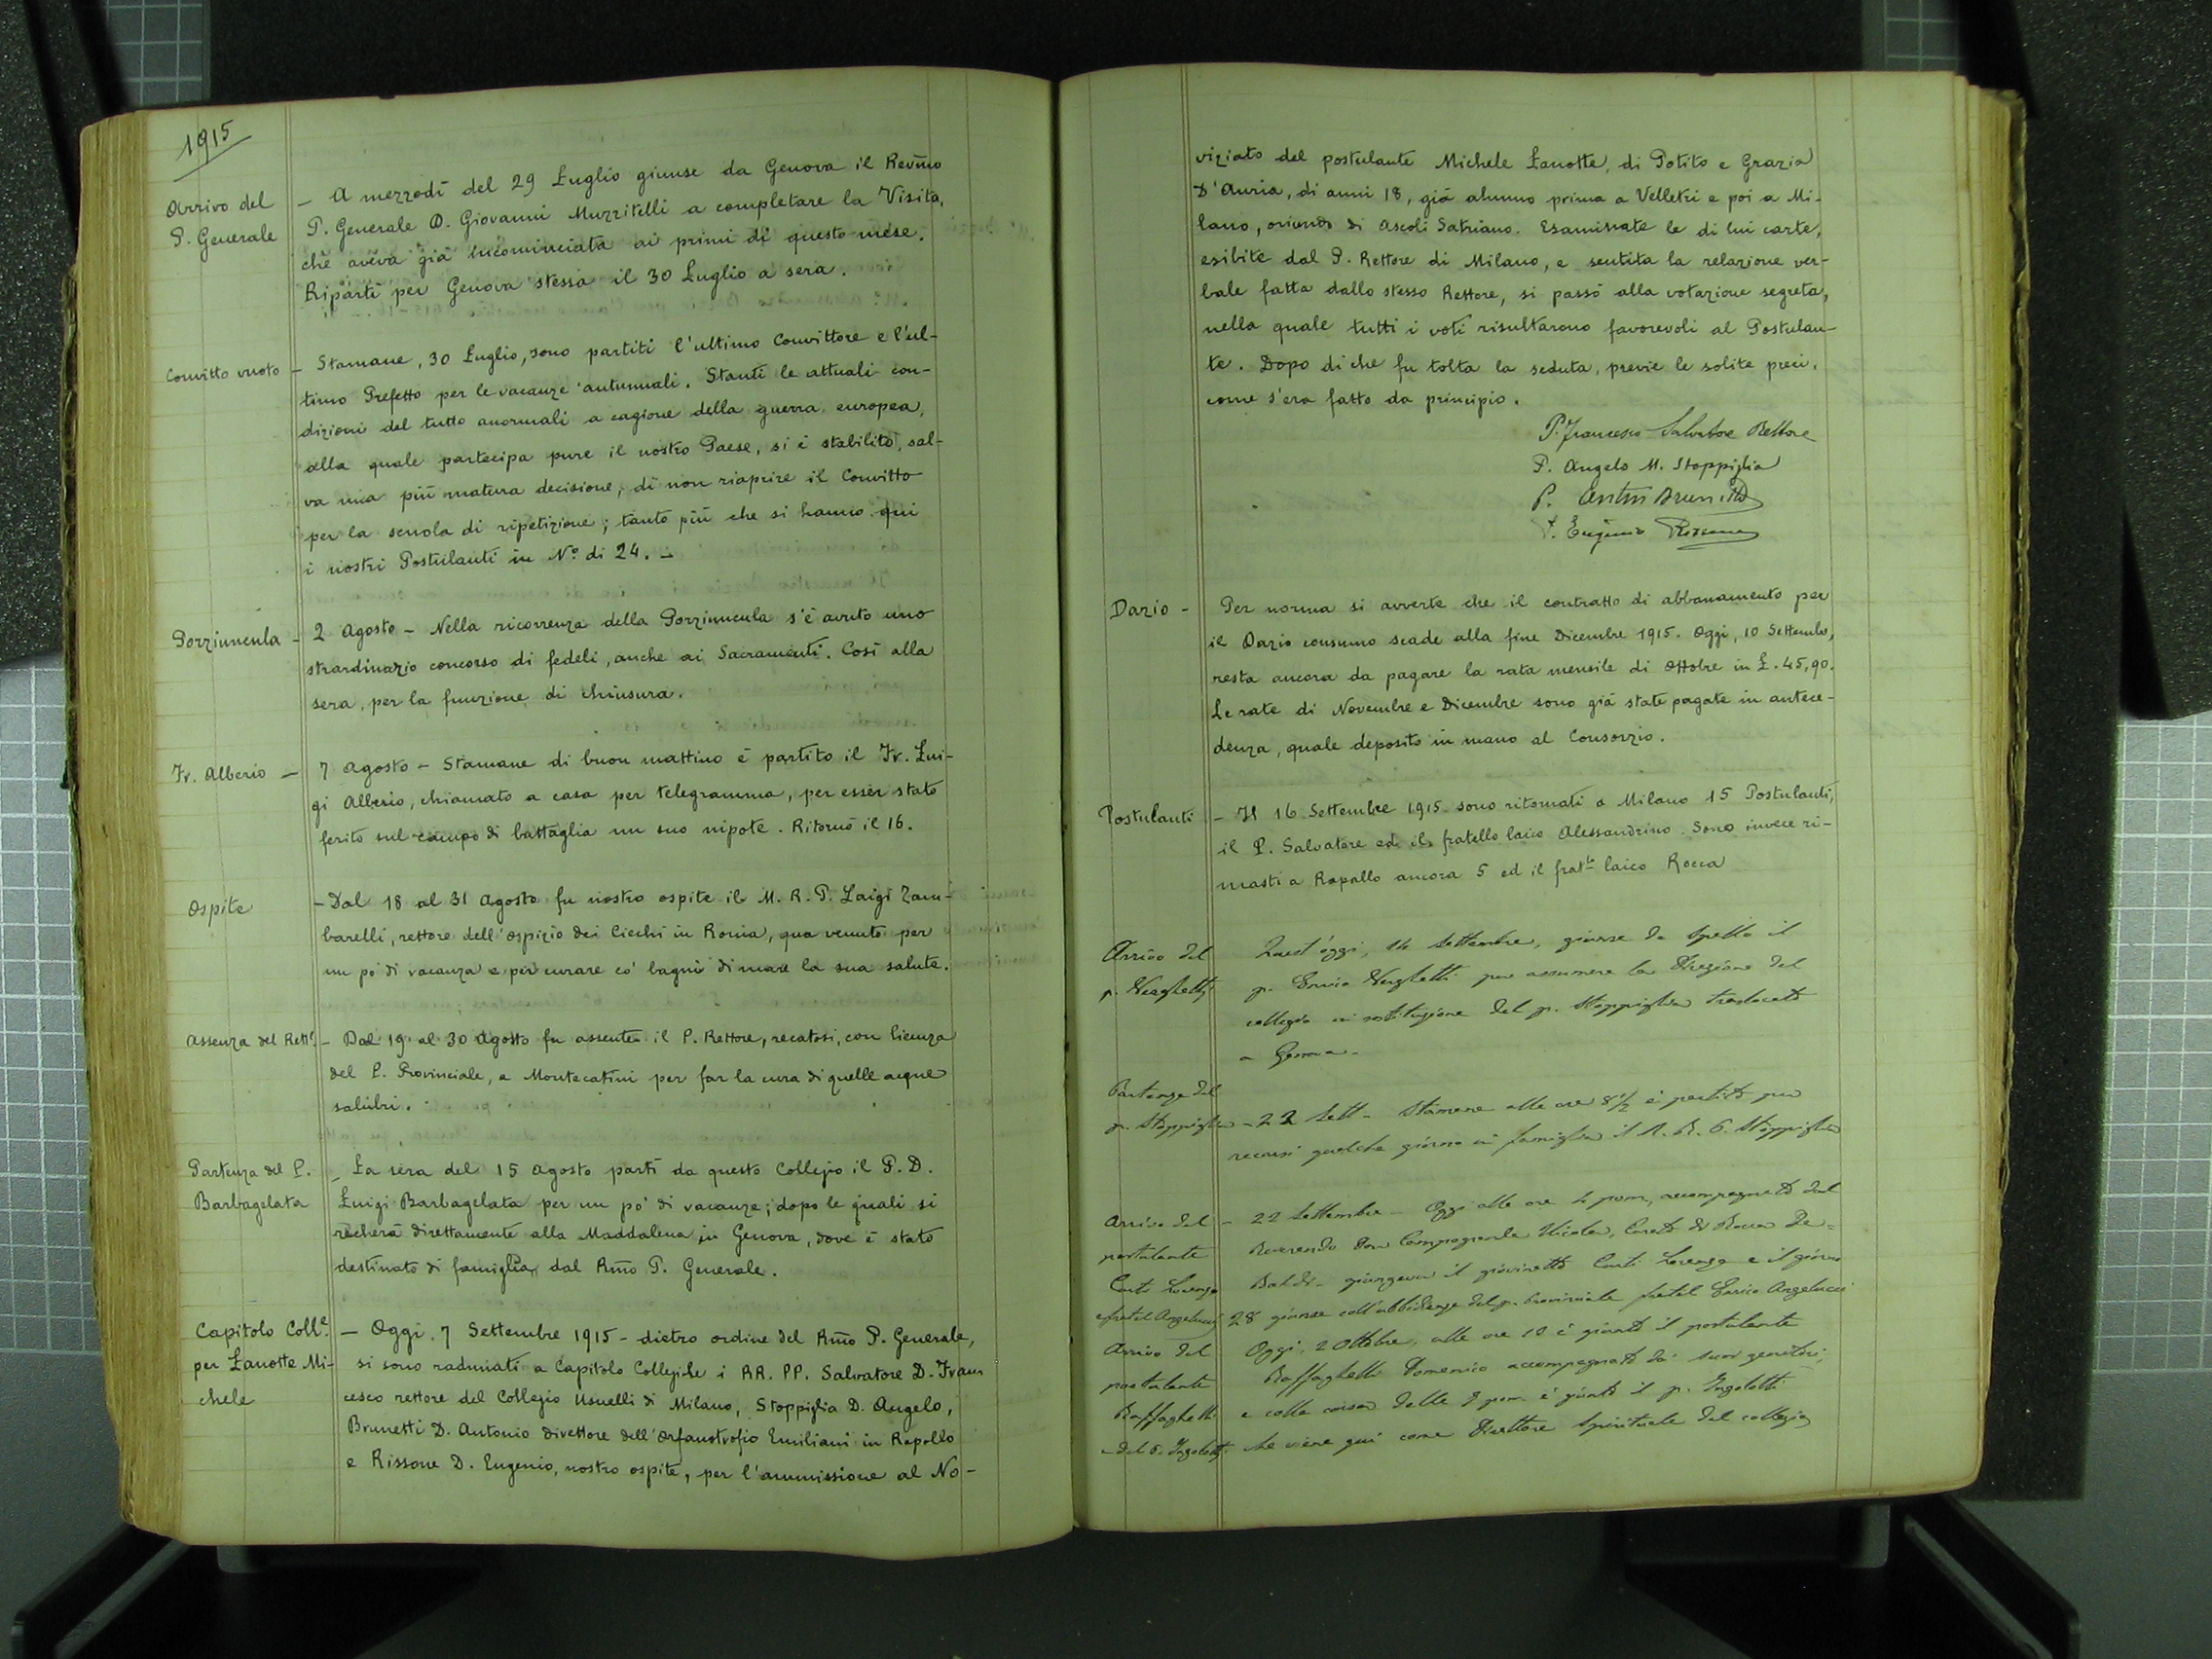 1915
Arrivo del
P. Generale
– A mezzodì del 29 Luglio giunse da Genova il Revmo
P. Generale D. Giovanni Muzzitelli a completare la Visita,
che aveva già incominciata ai primi di questo mese.
Ripartì per Genova stessa il 30 Luglio a sera.
Convitto vuoto
– Stamane, 30 Luglio, sono partiti l'ultimo Convittore e l'ul-
timo Prefetto per le vacanze autunnali. Stanti le attuali con-
dizioni del tutto anormali a cagione della guerra europea,
alla quale partecipa pure il nostro Paese, si è stabilito, sal-
va una più matura decisione, di non riaprire il Convitto
per la scuola di ripetizione; tanto più che si hanno qui
i nostri Postulanti in N.º di 24. –
Porziuncula –
2 Agosto – Nella ricorrenza della Porziuncula s'è avuto uno
strardinario concorso di fedeli, anche ai Sacramenti. Così alla
sera, per la funzione di chiusura.
Fr. Alberio –
7 Agosto – Stamane di buon mattino è partito il Fr. Lui-
gi Alberio, chiamato a casa per telegramma, per esser stato
ferito sul campo di battaglia un suo nipote. Ritornò il 16.
Ospite
– Dal 18 al 31 Agosto fu nostro ospite il M. R. P. Luigi Zam-
barelli, rettore dell'Ospizio dei Ciechi in Roma, qua venuto per
un po' di vacanza e per curare co' bagni di mare la sua salute.
Assenza del Rett.e
– Dal 19 al 30 Agosto fu assente il P. Rettore, recatosi, con licenza
del P. Provinciale, a Montecatini per far la cura di quelle acque
salubri.
Partenza del P.
Barbagelata
– La sera del 15 Agosto partì da questo Collegio il P. D.
Luigi Barbagelata per un po' di vacanze; dopo le quali si
recherà direttamente alla Maddalena in Genova, dove è stato
destinato di famiglia dal Rmo P. Generale.
Capitolo Coll.e
per Lanotte Mi-
chele
– Oggi, 7 Settembre 1915 – dietro ordine del Rmo P. Generale,
si sono radunati a Capitolo Collegiale i RR. PP. Salvatore D. Fran
cesco rettore del Collegio Usuelli di Milano, Stoppiglia D. Angelo,
Brunetti D. Antonio direttore dell'Orfanotrofio Emiliani in Rapallo
e Rissone D. Eugenio, nostro ospite, per l'ammissione al No-
viziato del postulante Michele Lanotte, di Potito e Grazia
D'Auria, di anni 18, già alunno prima a Velletri e poi a Mi-
lano, oriundo di Ascoli Satriano. Esaminate le di lui carte,
esibite dal P. Rettore di Milano, e sentita la relazione ver-
bale fatta dallo stesso Rettore, si passò alla votazione segreta,
nella quale tutti i voti risultarono favorevoli al Postulan-
te. Dopo di che fu tolta la seduta, previe le solite preci,
come s'era fatto da principio.
P. Francesco Salvatore Rettore
P. Angelo M. Stoppiglia
P. Anton Brunetti
P. Eugenio Rissone
Dazio –
Per norma si avverte che il contratto di abbonamento per
il Dazio consumo scade alla fine Dicembre 1915. Oggi, 10 Settembre,
resta ancora da pagare la rata mensile di Ottobre in £. 45,90.
Le rate di Novembre e Dicembre sono già state pagate in antece-
denza, quale deposito in mano al Consorzio.
Postulanti
– Il 16 Settembre 1915 sono ritornati a Milano 15 Postulanti,
il P. Salvatore ed il fratello laico Alessandrino. Sono invece ri-
masti a Rapallo ancora 5 ed il frat.lo laico Rocca
Arrivo del
p. Verghetti
Quest'oggi, 14 Settembre, giunse da Spello il
p. Enrico Verghetti per assumere la Direzione del
collegio in sostituzione del p. Stoppiglia traslocato
a Genova.
Partenza del
p. Stoppiglia
– 22 Sett – Stamane alle ore 8 1/2 è partito per
recarsi qualche giorno in famiglia il M. R. P. Stoppiglia
Arrivo del
postulante
Conti Lorenzo
e fratel Angelucci
– 22 Settembre – Oggi alle ore 4 pom, accompagnato dal
Reverendo Don Nicola, Curato di Rocca De-
Baldi – giungeva il giovinetto Conti Lorenzo e il giorno
28 giunse coll'ubbidienza del p. Provinciale fratel Enrico Angelucci
Arrivo del
postulante
Raffaghelli
e del P. Ingolotti
Oggi, 2 Ottobre, alle ore 10 è giunto il postulante
Raffaghelli Domenico accompagnato dai suoi genitori,
e colla corsa delle 8 pom. è giunto il p. Ingolotti
che viene qui come Direttore Spirituale del collegio